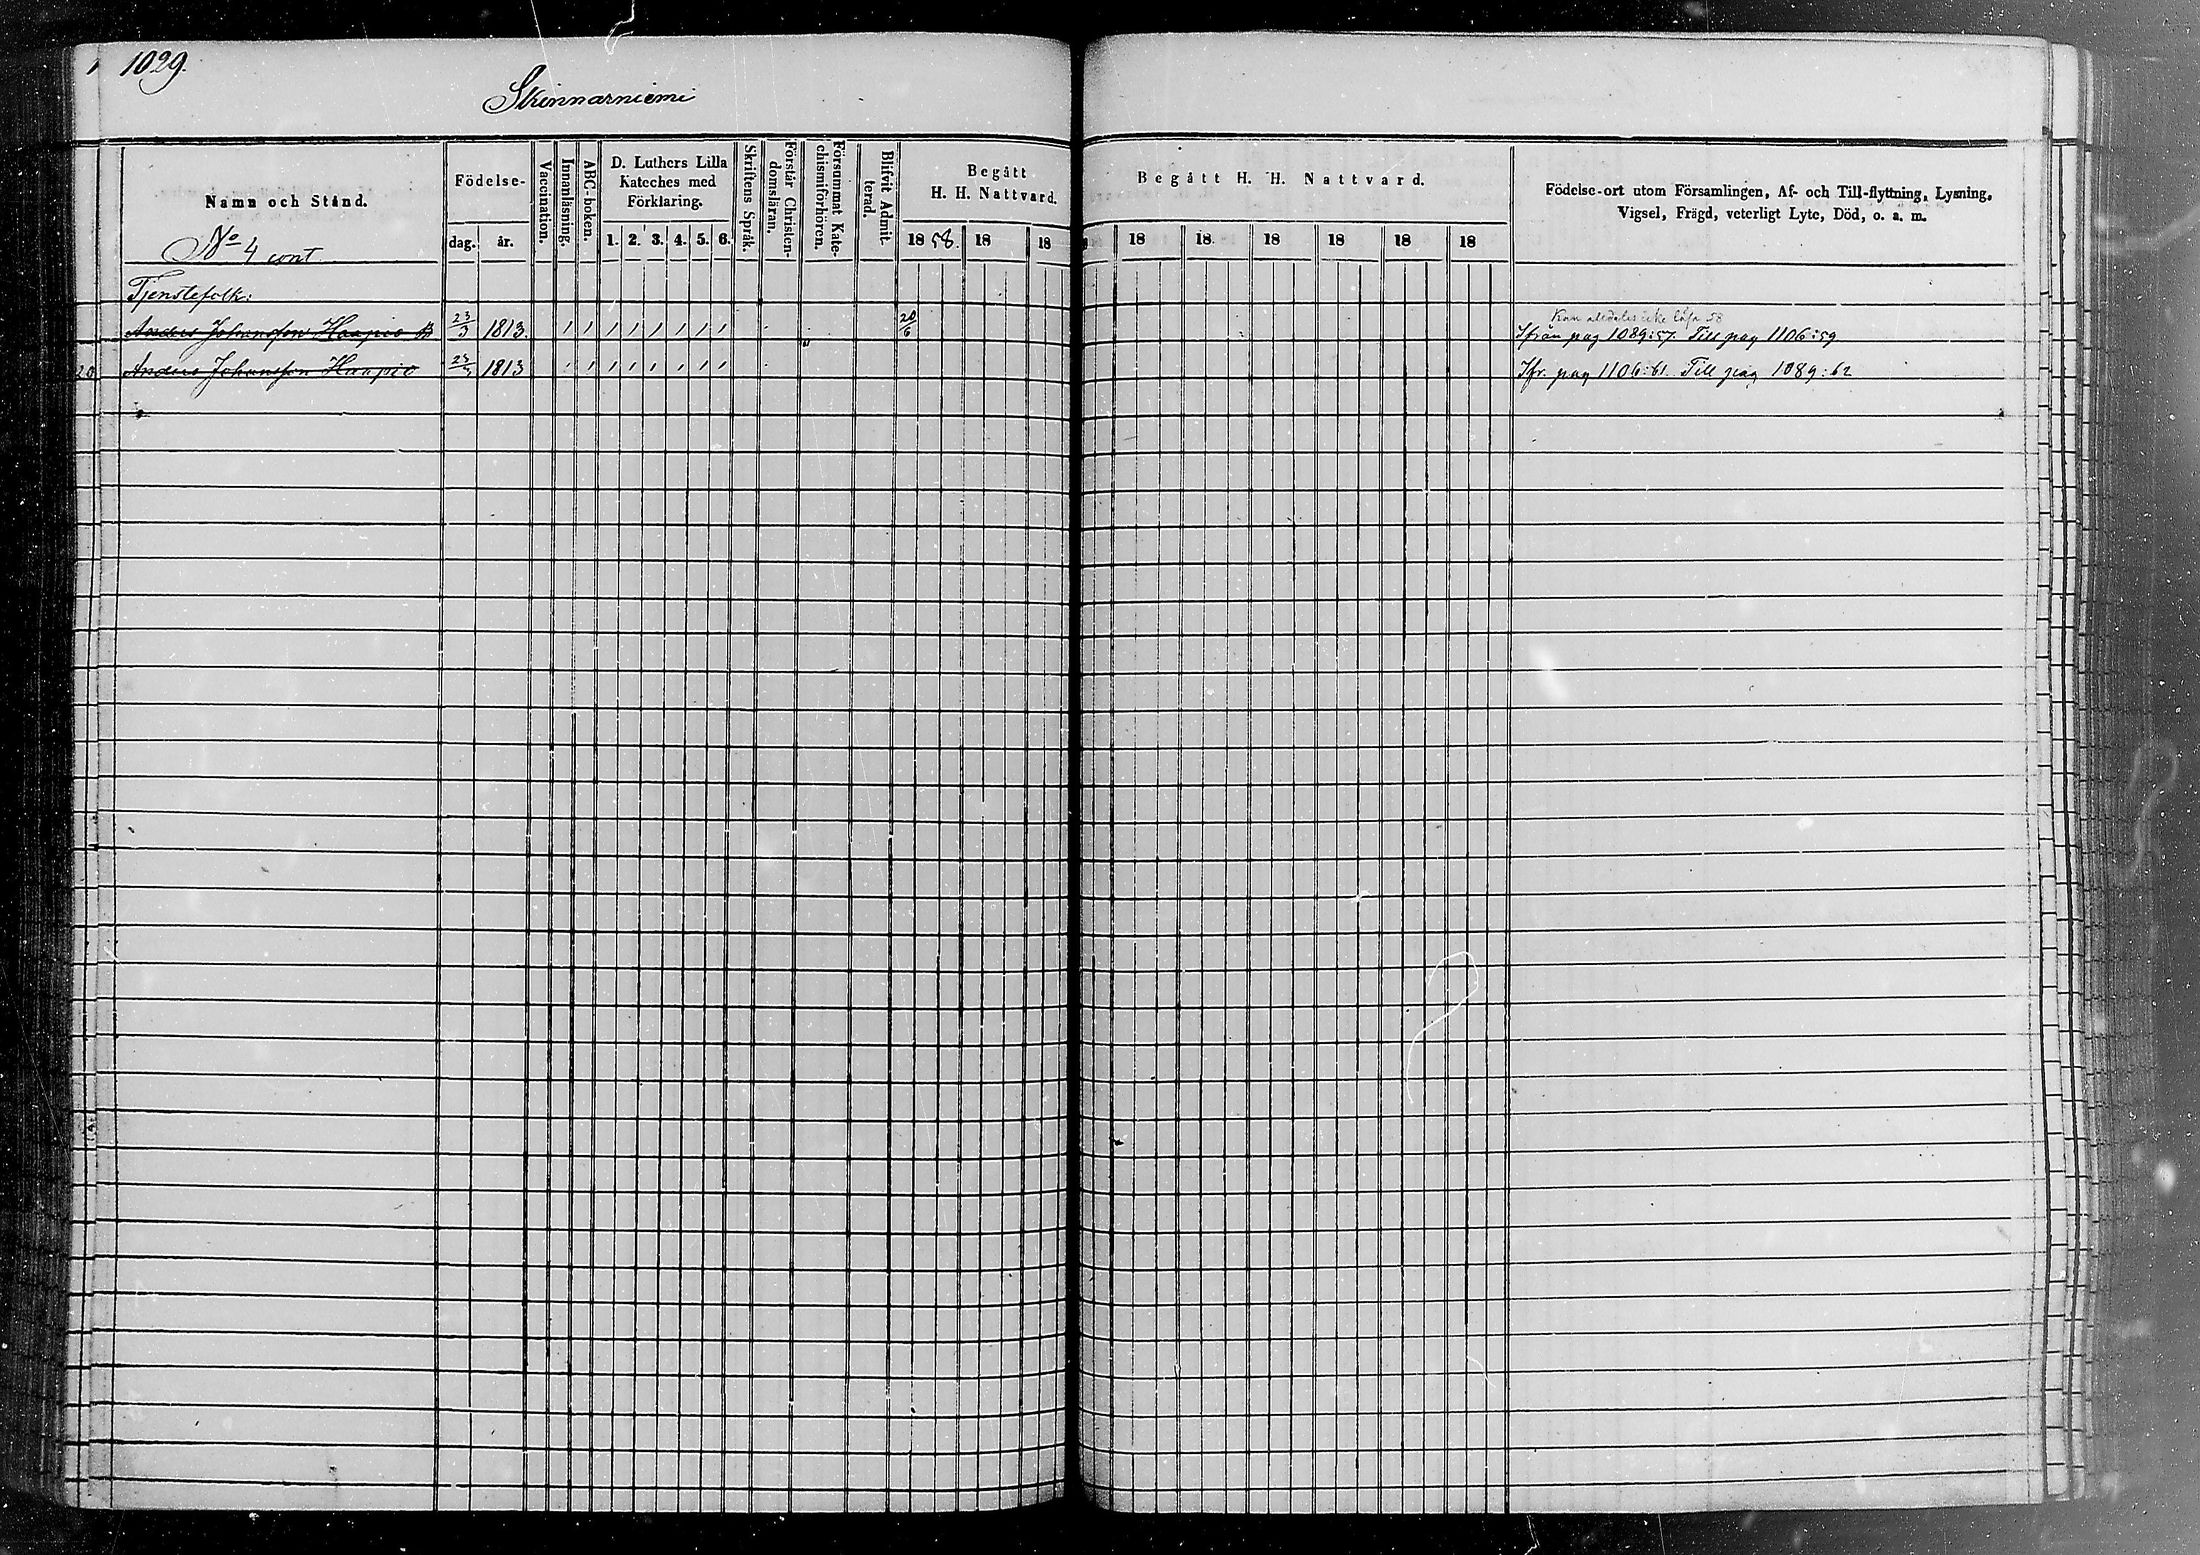 1029.
Skinnarniemi
Namn och Stånd.
Födelse-
dag. år.
Vaccination.
Innanläsning.
ABC-boken.
D. Luthers Lilla
Kateches med
Förklaring.
1. 2. 3. 4. 5. 6.
Skriftens Språk.
Förstår Christen-
domsläran.
Försummat Kate-
chismiförhören.
Blifvit Admit-
terad.
Begått
H. H. Nattvard.
18 58. 18 18
Begått H. H. Nattvard.
18 18. 18 18 18 18
Födelse-ort utom Församlingen, Af- och Till-flyttning, Lysning,
Vigsel, Frägd, veterligt Lyte, Död, o. a. m.
No 4 cont
Tjenstefolk:
Kan alldeles icke läsa 58
Anders Johansson Haapio 23/3 1813. 20/6 Ifrån pag 1089:57. Till pag 1106:59
20 Anders Johansson Haapio 23/3 1813 Ifr. pag 1106:61. Till pag 1089:62